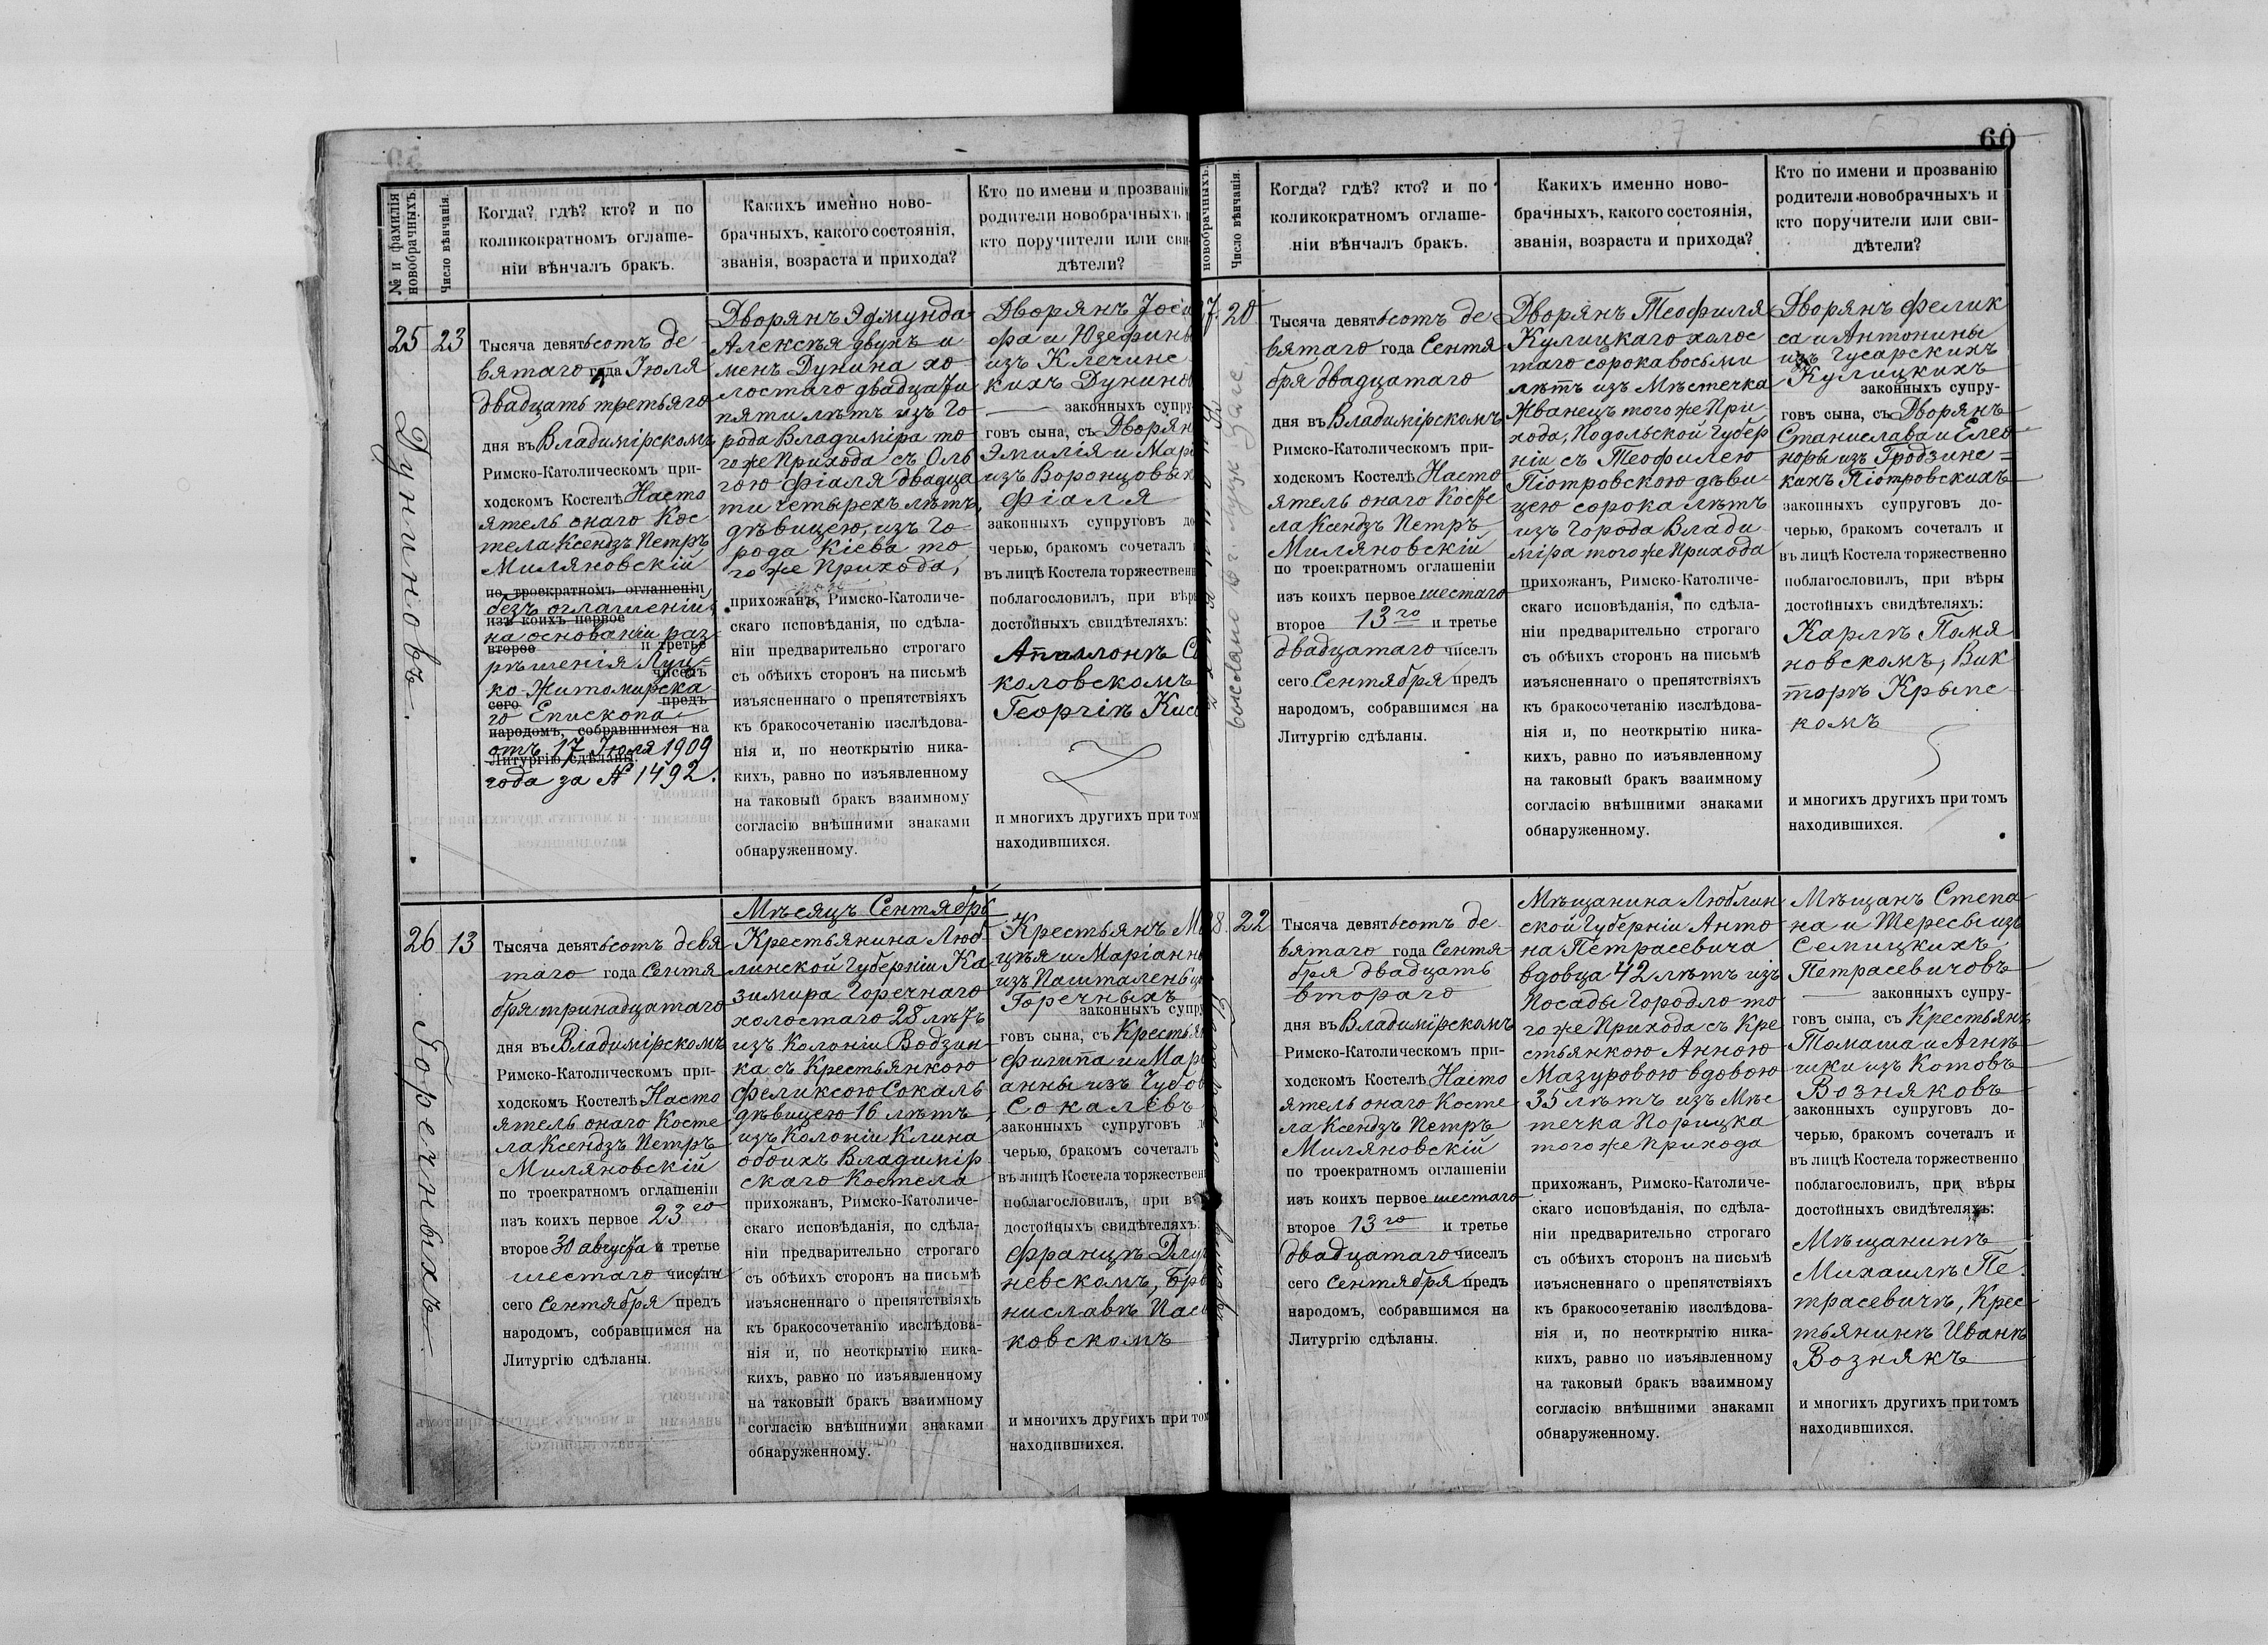 60
№ и фамилія
новобрачныхъ.
Число вѣнчанія.
Когда? гдѣ? кто? и по
коликократномъ оглаше-
ніи вѣнчалъ бракъ.
Какихъ именно ново-
брачныхъ, какого состоянія,
званія, возраста и прихода?
Кто по имени и прозванію
родители новобрачныхъ
кто поручители или сви-
дѣтели?
25
23
Дуниновъ.
Тысяча девятьсотъ де
вятаго года Іюля
двадцать третьяго
дня въ Владимірскомъ
Римско-Католическомъ при-
ходскомъ Костелѣ Насто
ятель онаго Кос
тела Ксендзъ Петръ
Миляновскій
по троекратномъ оглашеніи
безъ оглашеній
изъ коихъ первое
на основаніи раз
второе и третье
рѣшенія Луц
чиселъ
ко-Житомирска
сего предъ
го Епископа
народомъ, собравшимся на
отъ 17 Іюля 1909
Литургію сдѣланы.
года за № 1492.
Дворянъ Эдмунда
Алексѣя двухъ и
менъ Дунина хо
лостаго двадцати
пяти лѣтъ изъ Го
рода Владиміра то
го же Прихода съ Оль
гою Фіаля двадца
ти четырехъ лѣтъ,
дѣвицею, изъ Го
рода Кіева то
го же Прихода,
прихожанъ, Римско-Католиче-
скаго исповѣданія, по сдѣла-
ніи предварительно строгаго
съ обѣихъ сторонъ на письмѣ
изъясненнаго о препятствіяхъ
къ бракосочетанію изслѣдова-
нія и, по неоткрытію ника-
кихъ, равно по изъявленному
на таковый бракъ взаимному
согласію внѣшними знаками
обнаруженному.
Дворянъ Іоси
фа и Юзефины
изъ Клечинс
кихъ Дунино
законныхъ супру
говъ сына, съ Дворян
Эмилія и Мар
изъ Воронцовых
Фіаля
законныхъ супруговъ до
черью, бракомъ сочеталъ
въ лицѣ Костела торжествен
поблагословилъ, при вѣры
достойныхъ свидѣтеляхъ:
Аполлонѣ Со
коловскомъ
Георгіѣ Кис
и многихъ другихъ при том
находившихся.
26
13
Горечныхъ
Тысяча девятьсотъ девя
таго года Сентя
бря тринадцатаго
дня въ Владимірскомъ
Римско-Католическомъ при-
ходскомъ Костелѣ Насто
ятель онаго Косте
ла Ксендзъ Петръ
Миляновскій
по троекратномъ оглашеніи
изъ коихъ первое 23го
второе 30 августа и третье
шестаго чиселъ
сего Сентября предъ
народомъ, собравшимся на
Литургію сдѣланы.
Мѣсяцъ Сентябрь
Крестьянина Люб
линской Губерніи Ка-
зимира Горечнаго
холостаго 28 лѣтъ
изъ Колоніи Водзин
ка съ Крестьянкою
Феликсою Сокаль
дѣвицею 16 лѣтъ
изъ Колоніи Клина
обоихъ Владимір
скаго Костела
прихожанъ, Римско-Католиче-
скаго исповѣданія, по сдѣла-
ніи предварительно строгаго
съ обѣихъ сторонъ на письмѣ
изъясненнаго о препятствіяхъ
къ бракосочетанію изслѣдова-
нія и, по неоткрытію ника-
кихъ, равно по изъявленному
на таковый бракъ взаимному
согласію внѣшними знаками
обнаруженному.
Крестьянъ М
цѣя и Маріанны
изъ
Горечныхъ
законныхъ супру
говъ сына, съ Крестьян
Филипа и Мар
анны изъ Чубов
Сокалевъ
законныхъ супруговъ
черью, бракомъ сочеталъ
въ лицѣ Костела торжествен
поблагословилъ, при вѣ
достойныхъ свидѣтеляхъ:
Францѣ Длу
невскомъ, Бро
ниславѣ Пась
ковскомъ
и многихъ другихъ при том
находившихся.
новобрачныхъ.
Число вѣнчанія.
Когда? гдѣ? кто? и по
коликократномъ оглаше-
ніи вѣнчалъ бракъ.
Какихъ именно ново-
брачныхъ, какого состоянія,
званія, возраста и прихода?
Кто по имени и прозванію
родители новобрачныхъ и
кто поручители или сви-
дѣтели?
7
20
Тысяча девятьсотъ де
вятаго года Сентя
бря двадцатаго
дня въ Владимірскомъ
Римско-Католическомъ при-
ходскомъ Костелѣ Насто
ятель онаго Косте
ла Ксендзъ Петръ
Миляновскій
по троекратномъ оглашеніи
изъ коихъ первое шестаго
второе 13го и третье
двадцатаго чиселъ
сего Сентября предъ
народомъ, собравшимся на
Литургію сдѣланы.
Дворянъ Теофиля
Кулицкаго холос
таго сорока восьми
лѣтъ изъ Мѣстечка
Жванецъ того же При
хода, Подольской Губер
ніи съ Теофилею
Піотровскою дѣви
цею сорока лѣтъ
изъ Города Влади
міра того же Прихода
прихожанъ, Римско-Католиче-
скаго исповѣданія, по сдѣла-
ніи предварительно строгаго
съ обѣихъ сторонъ на письмѣ
изъясненнаго о препятствіяхъ
къ бракосочетанію изслѣдова-
нія и, по неоткрытію ника-
кихъ, равно по изъявленному
на таковый бракъ взаимному
согласію внѣшними знаками
обнаруженному.
Дворянъ Фелик
са и Антонины
изъ Гусарскихъ
Кулицкихъ
законныхъ супру-
говъ сына, съ Дворянъ
Станислава и Елео
норы изъ Гродзинс=
кихъ Піотровскихъ
законныхъ супруговъ до-
черью, бракомъ сочеталъ и
въ лицѣ Костела торжественно
поблагословилъ, при вѣры
достойныхъ свидѣтеляхъ:
Карлѣ Поня
новскомъ, Вик
торѣ Крыпс
комъ
и многихъ другихъ при томъ
находившихся.
28
22
Тысяча девятьсотъ де
вятаго года Сентя-
бря двадцать
втораго
дня въ Владимірскомъ
Римско-Католическомъ при-
ходскомъ Костелѣ Насто
ятель онаго Косте
ла Ксендзъ Петръ
Миляновскій
по троекратномъ оглашеніи
изъ коихъ первое шестаго
второе 13го и третье
двадцатаго чиселъ
сего Сентября предъ
народомъ, собравшимся на
Литургію сдѣланы.
Мѣщанина Люблин
ской Губерніи Анто
на Петрасевича
вдовца 42 лѣтъ изъ
Посады Городло то
го же Прихода съ Кре
стьянкою Анною
Мазуровою вдовою
35 лѣтъ изъ Мѣс
течка Порицка
того же Прихода
прихожанъ, Римско-Католиче-
скаго исповѣданія, по сдѣла-
ніи предварительно строгаго
съ обѣихъ сторонъ на письмѣ
изъясненнаго о препятствіяхъ
къ бракосочетанію изслѣдова-
нія и, по неоткрытію ника-
кихъ, равно по изъявленному
на таковый бракъ взаимному
согласію внѣшними знаками
обнаруженному.
Мѣщанъ Степа
на и Тересы изъ
Семицкихъ
Петрасевичовъ
законныхъ супру-
говъ сына, съ Крестьянъ
Томаша и Агнѣ
шки изъ Котовъ
Возняковъ
законныхъ супруговъ до-
черью, бракомъ сочеталъ и
въ лицѣ Костела торжественно
поблагословилъ, при вѣры
достойныхъ свидѣтеляхъ:
Мѣщанинѣ
Михаилѣ Пе
трасевичѣ, Крес-
тьянинѣ Иванѣ
Вознякѣ
и многихъ другихъ при томъ
находившихся.